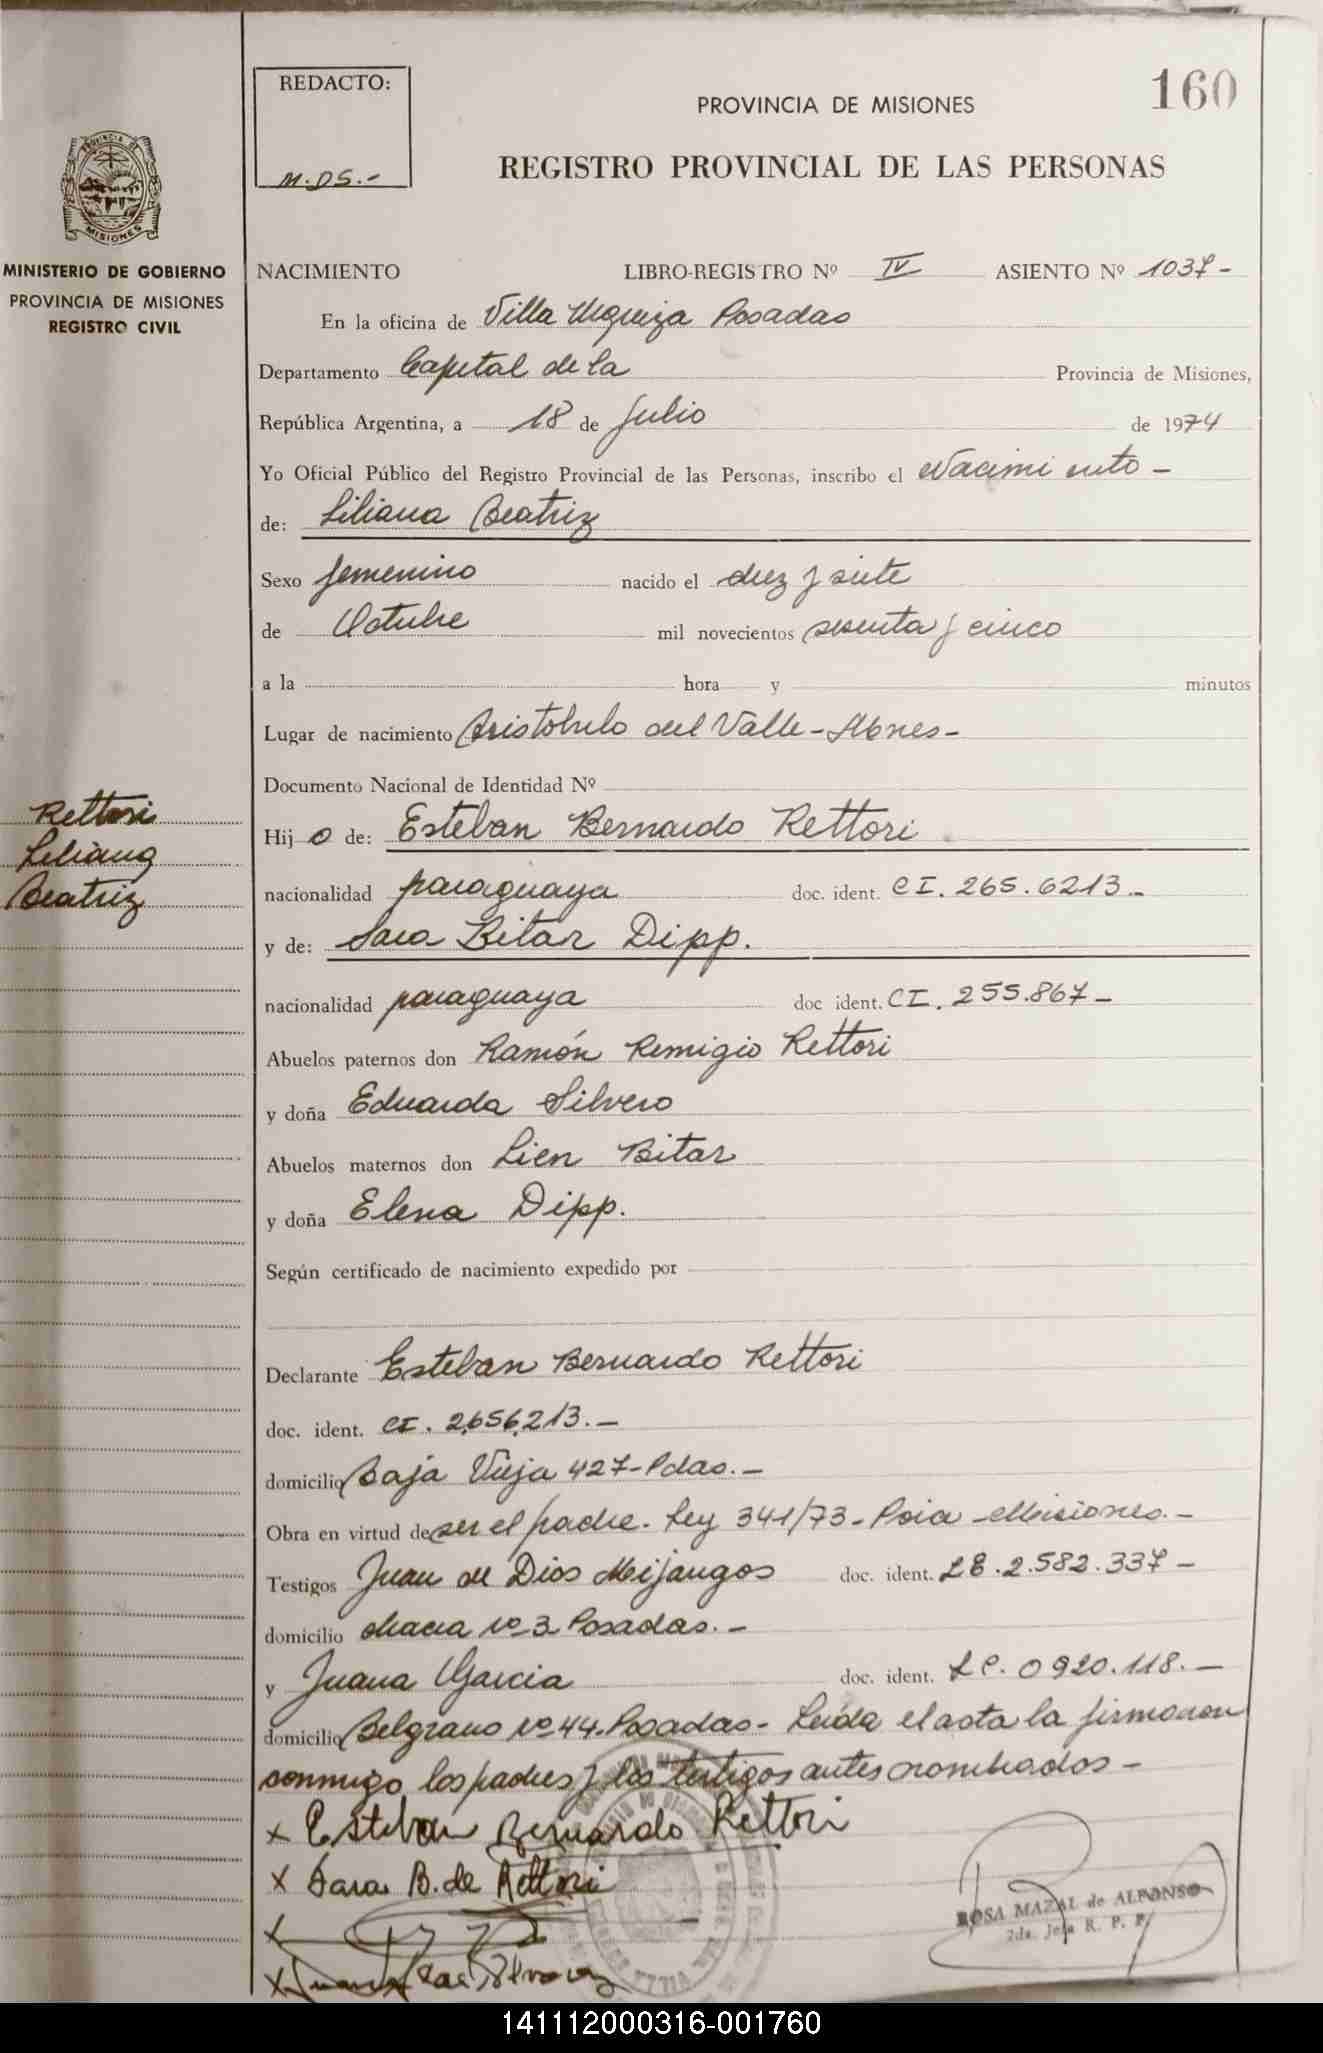 160
REDACTO:
M.DS.-
PROVINCIA DE MISIONES
REGISTRO PROVINCIAL DE LAS PERSONAS
PROVINCIA DE
MISIONES
MINISTERIO DE GOBIERNO
PROVINCIA DE MISIONES
REGISTRO CIVIL
NACIMIENTO LIBRO-REGISTRO Nº IV ASIENTO Nº 1037-
En la oficina de Villa Urquiza Posadas
Departamento Capital de la Provincia de Misiones,
República Argentina, a 18 de Julio de 1974
Yo Oficial Público del Registro Provincial de las Personas, inscribo el Nacimiento -
de: Liliana Beatriz
Sexo femenino nacido el diez y siete
de Octubre mil novecientos sesenta y cinco
a la hora y minutos
Lugar de nacimiento Aristóbulo del Valle-Mnes-
Documento Nacional de Identidad Nº
Rettori
Liliana
Beatriz
Hij o de: Esteban Bernardo Rettori
nacionalidad paraguaya doc. ident. CI. 265.6213.-
y de: Sara Bitar Dipp.
nacionalidad paraguaya doc ident. CI. 255.867-
Abuelos paternos don Ramón Remigio Rettori
y doña Eduarda Silvero
Abuelos maternos don Lien Bitar
y doña Elena Dipp.
Según certificado de nacimiento expedido por
Declarante Esteban Bernardo Rettori
doc. ident. CI. 2.656.213.-
domicilio Baja Vieja 427-Pdas.-
Obra en virtud de ser el padre. Ley 341/73-Pcia Misiones.-
Testigos Juan de Dios Mijangos doc. ident. LE.2.582.337-
domicilio chacra Nº 3 Posadas.-
y Juana Garcia doc. ident. LC. 0920.118.-
domicilio Belgrano Nº 44.Posadas- Leída el acta la firmaron
conmigo los padres y los testigos antes nombrados-
x Esteban Bernardo Rettori
x Sara B. de Rettori
x
x Juana
ROSA MAZAL de ALFONSO
2da. Jefa R. P. P.
141112000316-001760